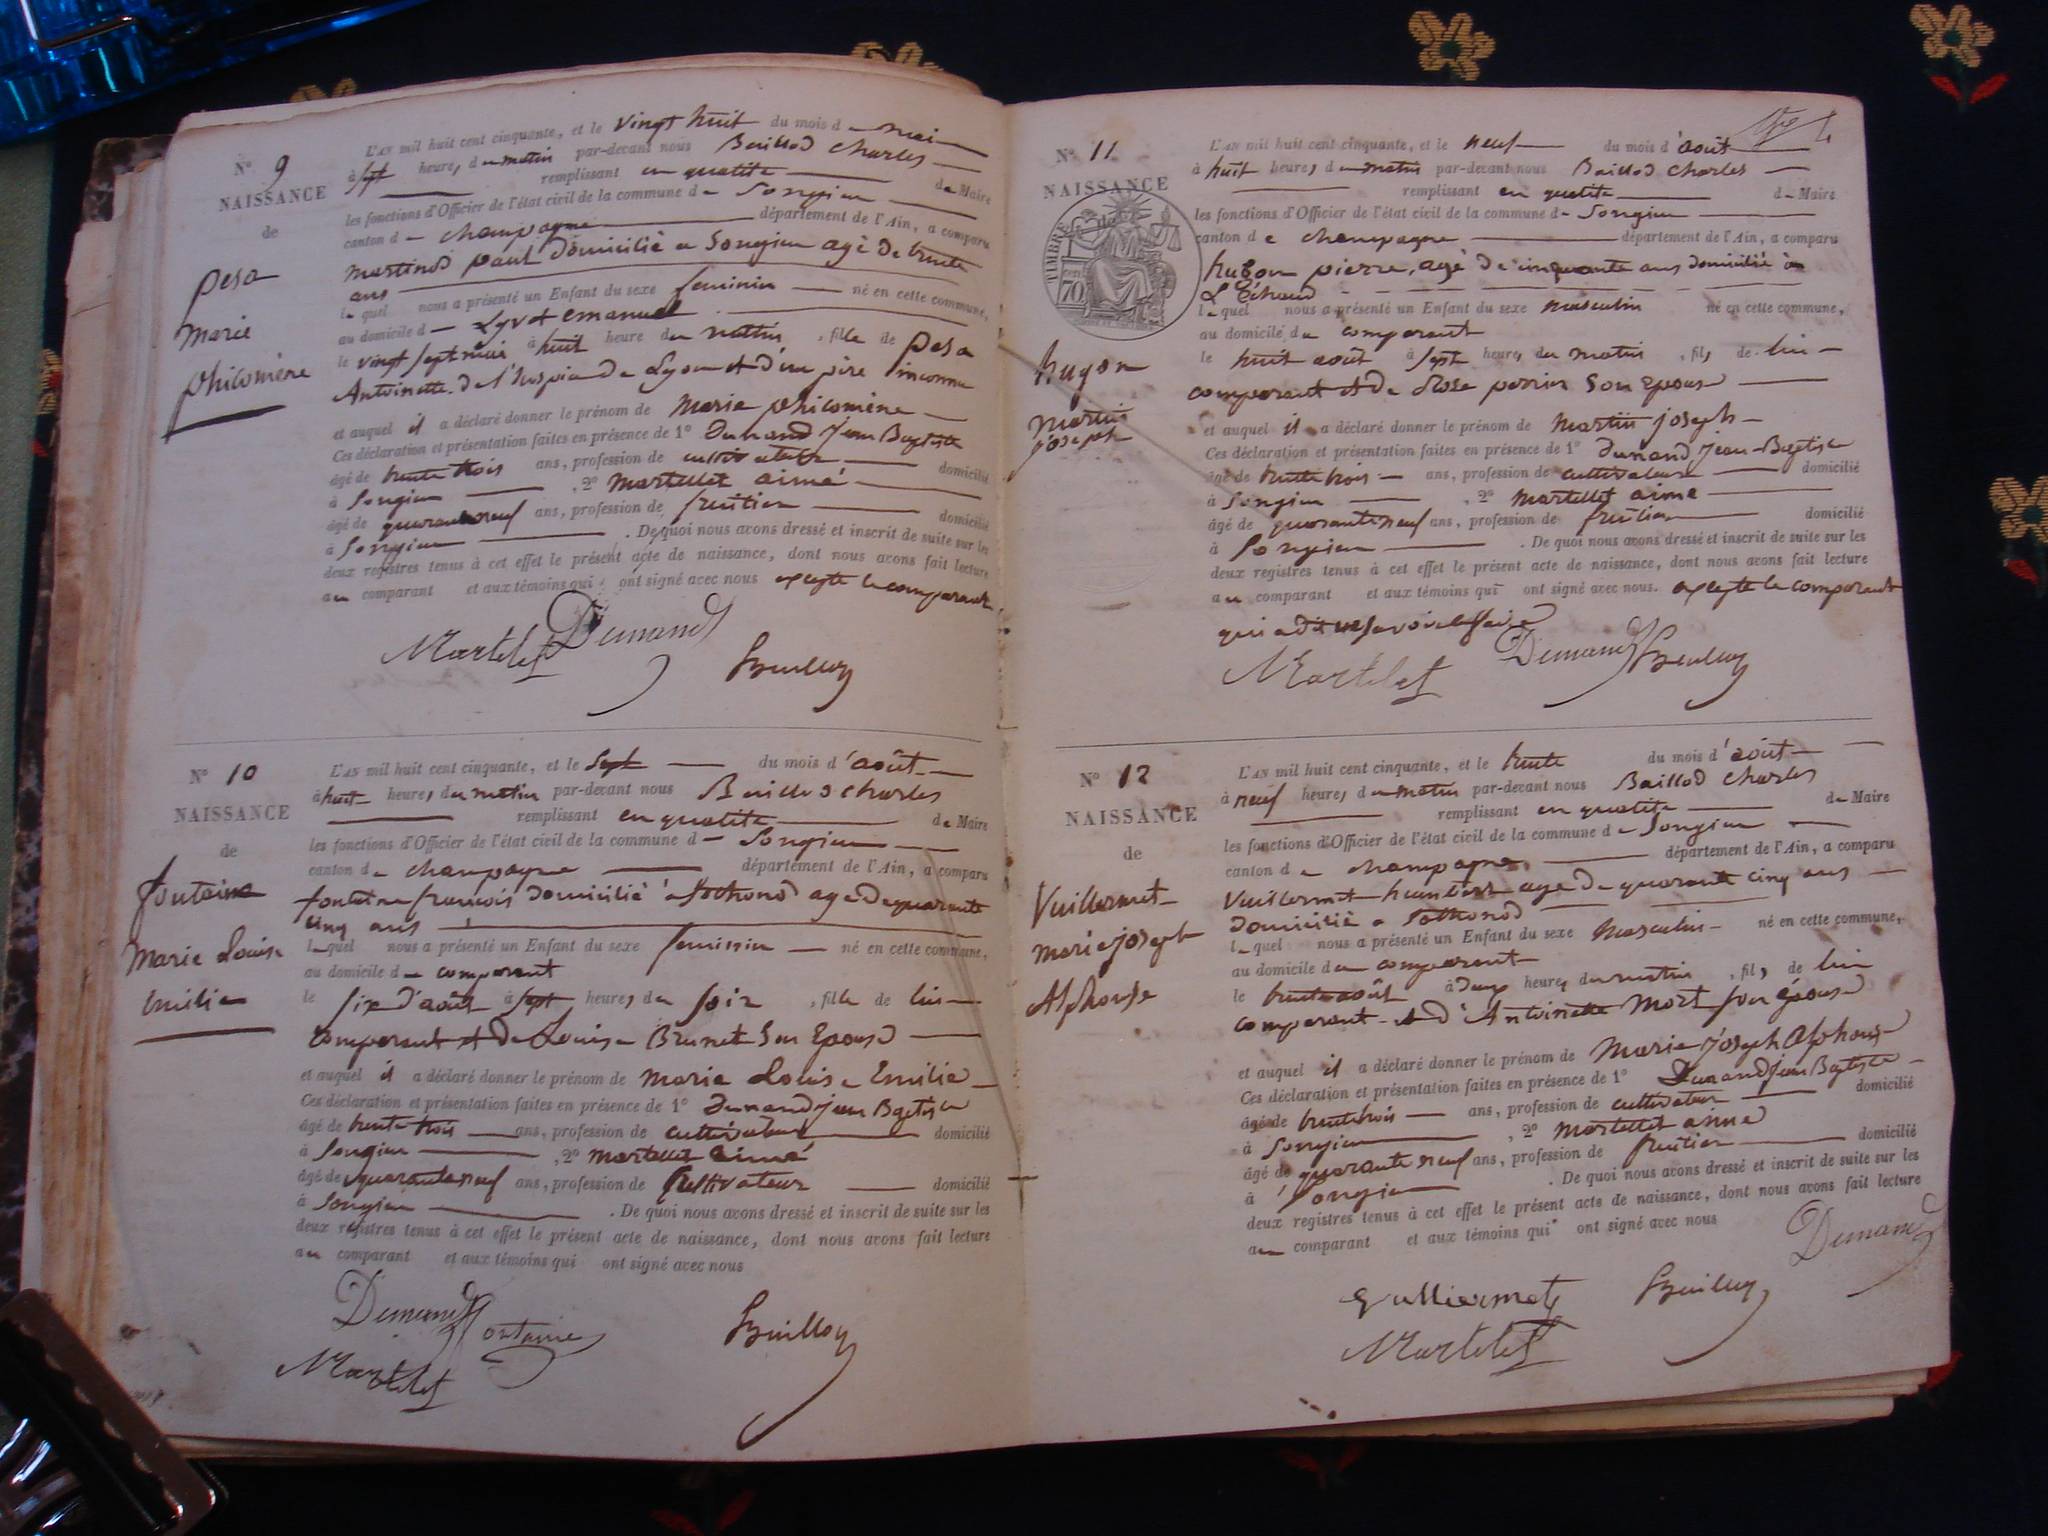 N° 9
NAISSANCE
de
pesa
marie
philomène
L'AN mil huit cent cinquante, et le vingt huit du mois de mai
à sept heure, du matin par-devant nous Baillod Charles
remplissant en qualité de Maire
les fonctions d'Officier de l'état civil de la commune de Songieu
canton de champagne département de l'Ain, a comparu
martinod paul domicilié a Songieu agé de trente
ans
lequel nous a présenté un Enfant du sexe feminin né en cette commune,
au domicile de emanuel
le vingt sept mai à huit heure du matin, fille de pesa
Antoinette de l'hospice de Lyon et d'un père inconnu
et auquel il a déclaré donner le prénom de Marie philomène
Ces déclaration et présentation faites en présence de 1° Dunand Jean Baptiste
âgé de trente trois ans, profession de cultivateur domicilié
à Songieu, 2° Martellet aimé
âgé de quarante neuf ans, profession de fruitier domicilié
à Songieu. De quoi nous avons dressé et inscrit de suite sur les
deux registres tenus à cet effet le présent acte de naissance, dont nous avons fait lecture
au comparant et aux témoins qui ont signé avec nous excepte le comparant
Martelet Dunand
Baillod
N° 10
NAISSANCE
de
fontaine
Marie Louise
Emilie
L'AN mil huit cent cinquante, et le sept du mois d'août
à huit heure, du matin par-devant nous Baillod charles
remplissant en qualité de Maire
les fonctions d'Officier de l'état civil de la commune de Songieu
canton de champagne département de l'Ain, a comparu
fontaine francois domicilié à Sothonod agé de quarante
cinq ans
lequel nous a présenté un Enfant du sexe feminin né en cette commune,
au domicile du comparant
le six d'août à sept heures du soir, fille de lui
comparant et de Louise Brunet Son Epouse
et auquel il a déclaré donner le prénom de Marie Louise Emilie
Ces déclaration et présentation faites en présence de 1° Dunand jean Baptiste
âgé de trente trois ans, profession de cultivateur domicilié
à Songieu, 2° Martellet aimé
âgé de quarante neuf ans, profession de Cultivateur domicilié
à Songieu. De quoi nous avons dressé et inscrit de suite sur les
deux registres tenus à cet effet le présent acte de naissance, dont nous avons fait lecture
au comparant et aux témoins qui ont signé avec nous
Dunand Fontaine
Baillod
Martelet
N° 11
NAISSANCE
TIMBRE
70
hugon
martin
joseph
L'AN mil huit cent cinquante, et le neuf du mois d'août
à huit heure, du matin par-devant nous Baillod Charles
remplissant en qualité de Maire
les fonctions d'Officier de l'état civil de la commune de Songieu
canton de champagne département de l'Ain, a comparu
hugon pierre, agé de cinquante ans domicilié à
lequel nous a présenté un Enfant du sexe masculin né en cette commune,
au domicile du comparant
le huit août à sept heures du matin, fils de lui
comparant et de Rose perrin Son Epouse
et auquel il a déclaré donner le prénom de Martin joseph
Ces déclaration et présentation faites en présence de 1° Dunand Jean-Baptiste
âgé de trente trois ans, profession de cultivateur domicilié
à Songieu, 2° Martellet aimé
âgé de quarante neuf ans, profession de fruitier domicilié
à Songieu. De quoi nous avons dressé et inscrit de suite sur les
deux registres tenus à cet effet le présent acte de naissance, dont nous avons fait lecture
au comparant et aux témoins qui ont signé avec nous. excepte le comparant
qui a dit ne savoir le faire
Martelet Dunand Baillod
N° 12
NAISSANCE
de
Vuillermet
marie joseph
Alphonse
L'AN mil huit cent cinquante, et le trente du mois d'août
à neuf heure, du matin par-devant nous Baillod Charles
remplissant en qualité de Maire
les fonctions d'Officier de l'état civil de la commune de Songieu
canton de champagne département de l'Ain, a comparu
Vuillermet humbert agé de quarante cinq ans
domicilié a Sothonod
lequel nous a présenté un Enfant du sexe Masculin né en cette commune,
au domicile du comparant
le trente août à deux heures du matin, fils de lui
comparant et d'Antoinette Mort son épouse
et auquel il a déclaré donner le prénom de Marie joseph Alphonse
Ces déclaration et présentation faites en présence de 1° Dunand jean Baptiste
âgé de trente trois ans, profession de cultivateur domicilié
à Songieu, 2° Martellet aimé
âgé de quarante neuf ans, profession de fruitier domicilié
à Songieu. De quoi nous avons dressé et inscrit de suite sur les
deux registres tenus à cet effet le présent acte de naissance, dont nous avons fait lecture
au comparant et aux témoins qui ont signé avec nous
Dunand
Guilliermet Baillod
Martelet